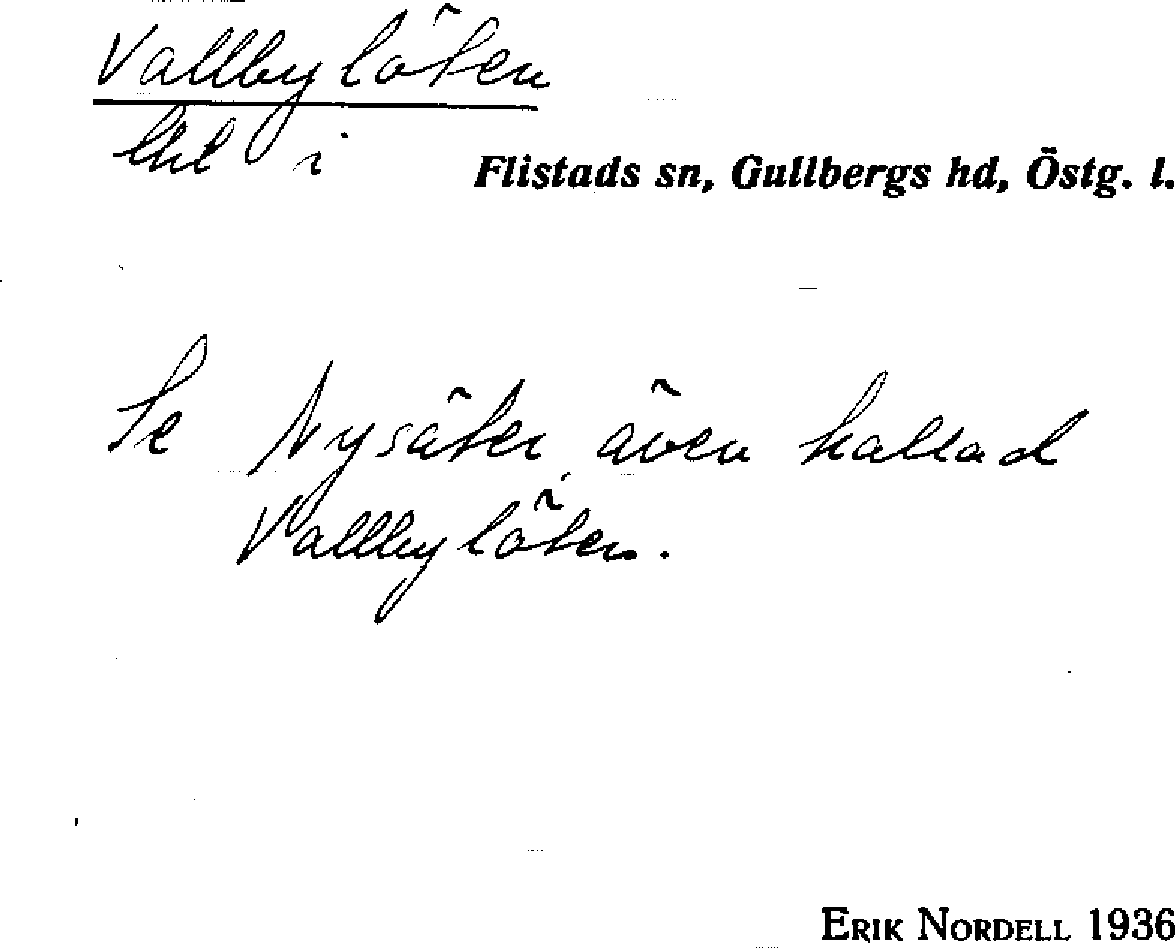 Vallbylöten
lht i Flistads sn, Gullbergs hd, Östg. l.
Se Nysäter, även kallad
Vallbylöten.
ERIK NORDELL 1936